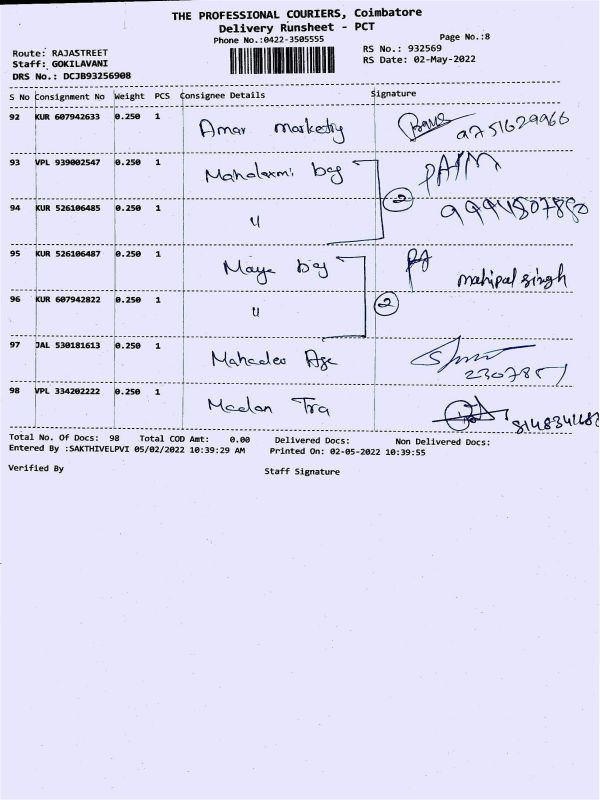 THE PROFESSIONAL COURIERS, Coimbatore
Delivery Runsheet - PCT
Phone No.:0422-3505555
Page No.:8
Route: RAJASTREET
RS No.: 932569
Staff: GOKILAVANI
RS Date: 02-May-2022
DRS No.: DCJB93256908
S No Consignment No Weight PCS Consignee Details Signature
92 KUR 607942633 0.250 1 Amar marketig 9751629966
93 VPL 939002547 0.250 1 Mahalaxmi bag
94 KUR 526106485 0.250 1 " 2 9994807880
95 KUR 526106487 0.250 1 Maya bag mahipal singh
96 KUR 607942822 0.250 1 " 2
97 JAL 530181613 0.250 1 Mahadev Age 2307857
98 VPL 334202222 0.250 1 Madan Tra
Total No. Of Docs: 98 Total COD Amt: 0.00 Delivered Docs: Non Delivered Docs:
Entered By :SAKTHIVELPVI 05/02/2022 10:39:29 AM Printed On: 02-05-2022 10:39:55
Verified By Staff Signature